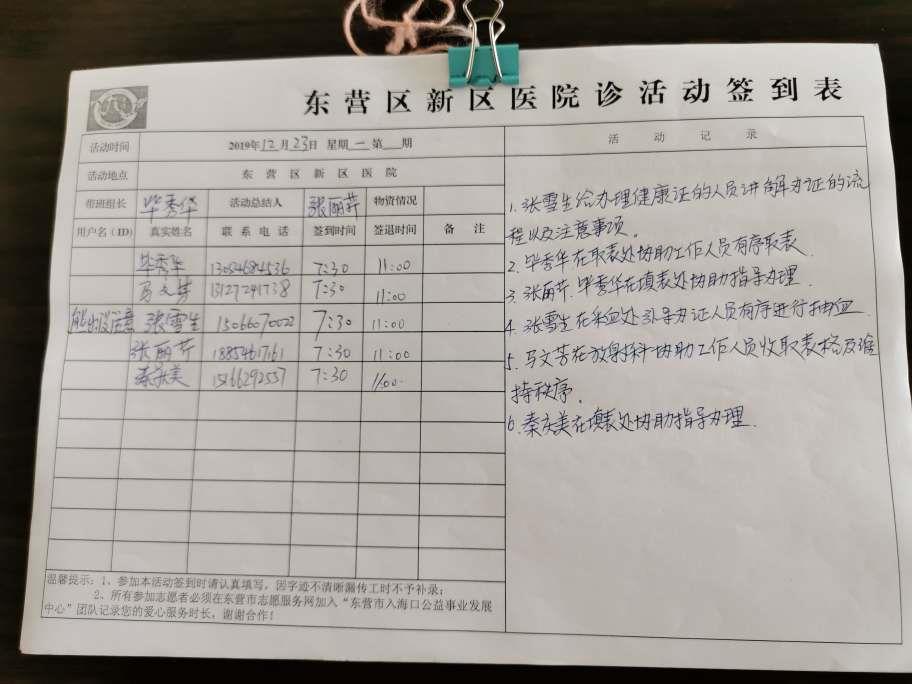 东营区新区医院诊活动签到表
活动时间 2019年12月23日 星期一 第 期
活动地点 东营区新区医院
带班组长 毕秀华 活动总结人 张丽芹 物资情况
用户名(ID) 真实姓名 联系电话 签到时间 签退时间 备注
毕秀华 13054684536 7:30 11:00
马文芳 13127241738 7:30 11:00
张雪生 15066070022 7:30 11:00
张丽芹 18854617161 7:30 11:00
秦京美 15166292557 7:30 11:00
温馨提示：1、参加本活动签到时请认真填写，因字迹不清晰漏传工时不予补录；
2、所有参加志愿者必须在东营市志愿服务网加入“东营市入海口公益事业发展
中心”团队记录您的爱心服务时长，谢谢合作！
活动记录
1.张雪生给办理健康证的人员讲解办证的流
程以及注意事项。
2.毕秀华在取表处协助工作人员有序取表.
3.张丽芹.毕秀华在填表处协助指导办理.
4.张雪生在采血处引导办证人员有序进行抽血.
5.马文芳在放射科协助工作人员收取表格及维
持秩序.
6.秦京美在填表处协助指导办理.